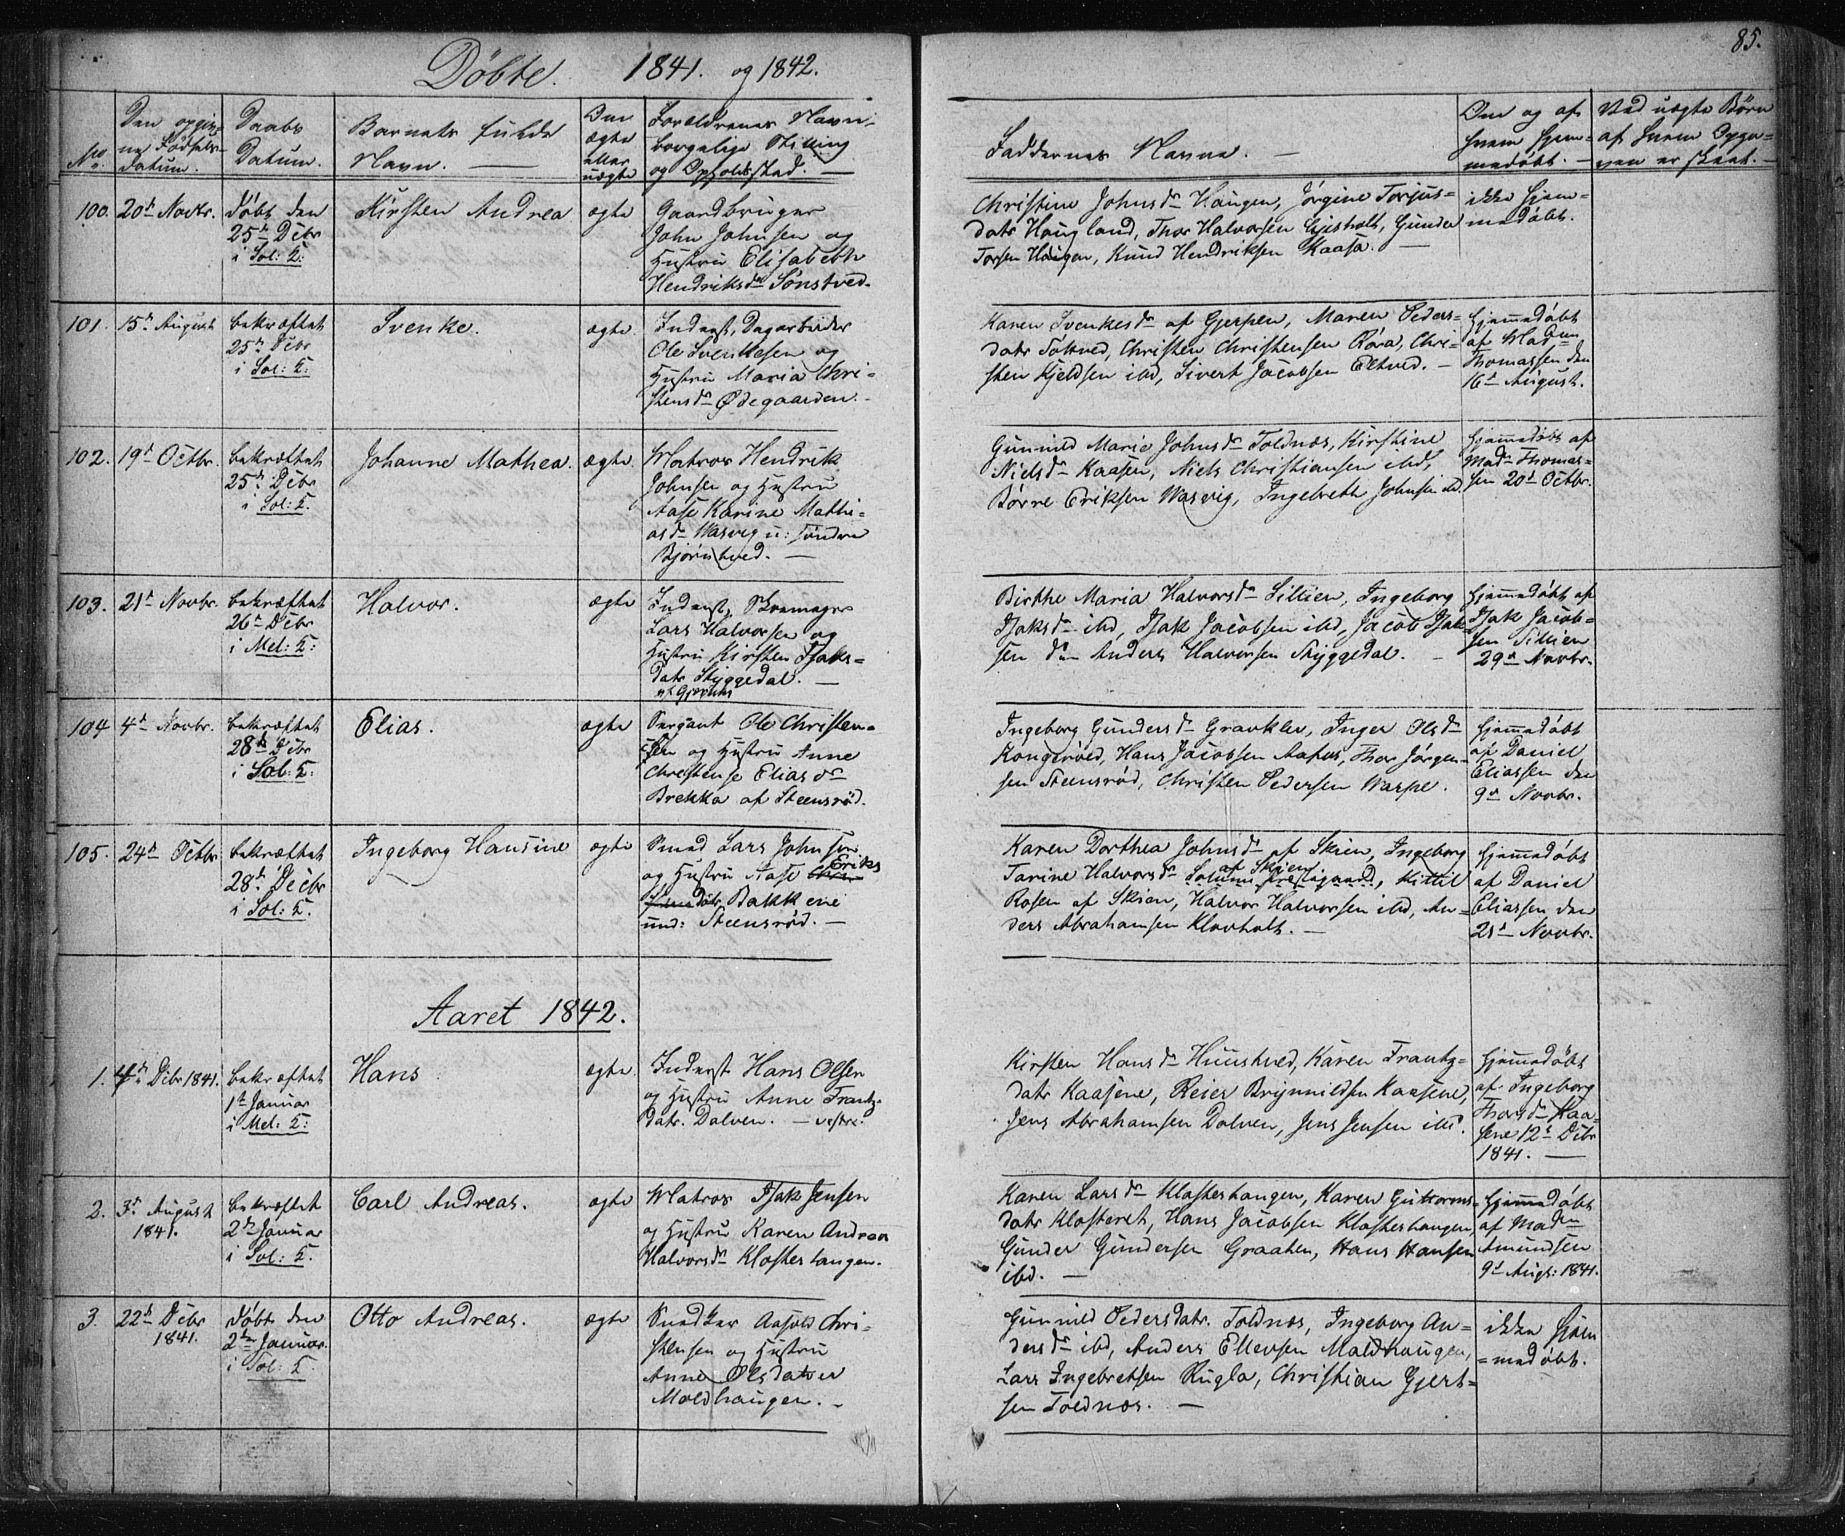 85.
Döbte. 1841. og 1842.
No.
Den opgivne Fødselsdatum.
Daabs Datum.
Barnets fulde Navn.
Om ægte eller uægte
Forældrenes Navn, borgelige Stilling og Opholdsstad.
Faddernes Navne.
Om og af hvem hjemmedøbt.
Ved uægte Børn af hvem Opgaven er skeet.
100. 20de Novbr.
Døbt den
25de Debr
i Sol: K:
Kirsten Andrea
ægte
Gaardbruger
John Johnsen og
Hustru Elisabeth
Hendriksdr Sønstved.
Christine Johnsdr Haugen, Jörgine Torjus-
datr Haugland, Thor Halvorsen Gjisholt, Gunder
Torsen Haugen, Knud Hendriksen Kaasa.
ikke hjem-
medøbt.
101. 15de August
bekræftet
25de Debr
i Sol: K:
Svenke.
ægte
Inderst, Dagarbeider
Ole Svenkesen og
Hustru Maria Chri-
stensdr Ødegaarden.
Karen Svenkesdr af Gjerpen, Maren Peders-
datr Toltved, Christen Christensen Röra, Chri-
sten Kjeldsen ibd, Sivert Jacobsen Eltved.
Hjemmedøbt
af Madam
Thomassen den
16de August.
102. 19de Octbr.
bekræftet
25de Debr
i Sol: K.
Johanne Mathea.
ægte
Matros Hendrik
Johnsen og Hustru
Aase Karine Mathi-
asdr Wasvig u: söndre
Bjørntved.
Gunnild Marie Johnsdr Toldnæs, Kirstine
Nielsdr Kaasen, Niels Christiansen ibd,
Børre Eriksen Wasvig, Ingebreth Johnsen ibd.
Hjemmedøbt af
Madm Thomas-
sen 20de Octbr.
103. 21de Novbr.
bekræftet
26de Debr
i Mel: K:
Halvor.
ægte
Inderst, Skomager
Lars Halvorsen og
Hustru Kirsten Isaks-
datr Styggedal.
af Gjerpen
Birthe Maria Halvorsdr Lillien, Ingeborg
Isaksdr ibd, Isak Jacobsen ibd, Jacob Isak-
sen ibd, Anders Halvorsen Styggedal.
Hjemmedøbt af
Isak Jacob-
sen Lillien
29de Novbr.
104 4de Novbr.
bekræftet
28de Debr
i Sol: K:
Elias.
ægte
Sergeant Ole Christen-
sen og Hustru Anne
Christense Eliasdr
Brekka af Steensrød.
Ingeborg Gundersdr Gravklev, Inger Olsdr
Kongerød, Hans Jacobsen Aafos, Thor Jörgen-
sen Steensrød, Christen Pedersen Warpe.
Hjemmedøbt
af Daniel
Eliassen den
9de Novbr.
105. 24de Octbr
bekræftet
28de Decbr
i Sol: K.
Ingeborg Hansine
ægte
Smed Lars Johnsen
og Hustru Aase Eriks
datr. Bakkene
und: Steensrød.
Karen Dorthea Johnsdr af Skien, Ingeborg
af Skien
Tarine Halvorsdr Solum Prestegaard, Kittil
Rosen af Skien, Halvor Halvorsen ibd, An-
ders Abrahamsen Klovholt.
Hjemmedøbt
af Daniel
Eliassen den
21de Novbr.
Aaret 1842.
1. 4de Debr 1841.
bekræftet
1ste Januar
i Mel: K:
Hans
ægte
Inderst Hans Olsen
og Hustru Anne Frantz-
datr. Dalven. — vestre.
Kirsten Hansdr Huustved, Karen Frantz-
datr Kaasene, Reier Brynnildsen Kaasene,
Jens Abrahamsen Dalven, Jens Jensen ibd.
Hjemmedøbt
af Ingeborg
Thorsdr Kaa-
sene 12te Debr
1841.
2. 3de August
1841.
bekræftet
2den Januar
i Sol: K.
Carl Andreas.
ægte
Matros Isak Jensen
og Hustru Karen Andrea
Halvorsdr Klosterhaugen.
Karen Larsdr Klosterhaugen, Karen Guttorms-
datr Klosteret, Hans Jacobsen Klosterhaugen,
Gunder Gundersen Graaten, Hans Hansen
ibd.
Hjemmedøbt
af Madm
Amundsen
9de Augs: 1841.
3. 22de Debr
1841.
Døbt den
2den Januar.
i Sol: K
Otto Andreas.
ægte
Snedker Aasold Chri-
stensen og Hustru
Anne Olsdatter
Moldhaugen.
Gunnild Pedersdatr. Toldnæs, Ingeborg An-
dersdr ibd, Anders Ellevsen Moldhaugen,
Lars Ingebretsen Rugla, Christian Gjert-
sen Toldnæs.
ikke hjem
-medøbt.